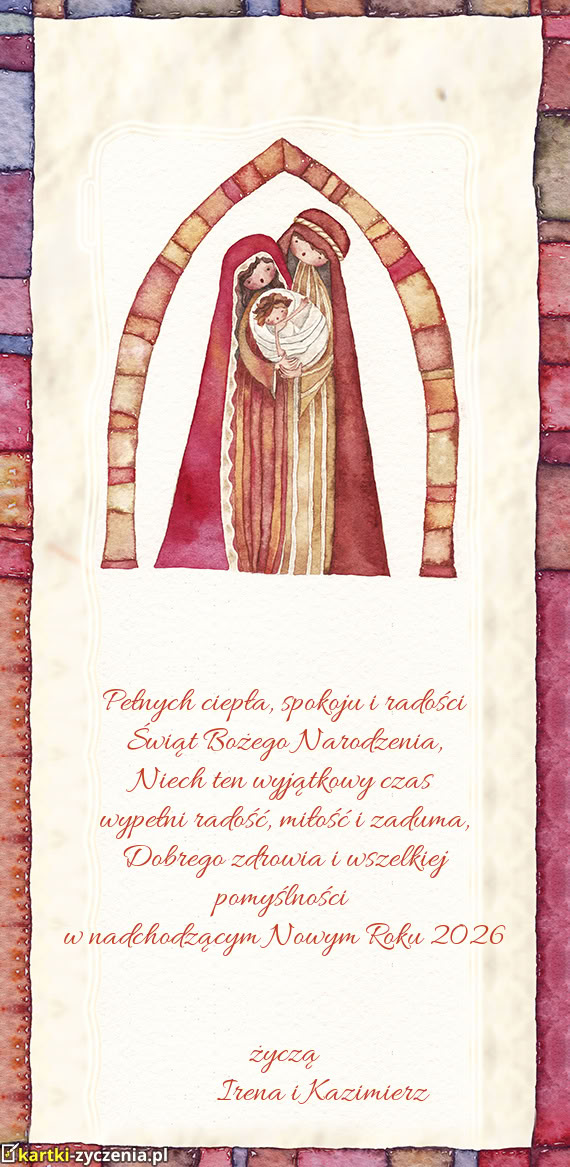 Pełnych ciepła, spokoju i radości
Świąt Bożego Narodzenia,
Niech ten wyjątkowy czas
wypełni radość, miłość i zaduma,
Dobrego zdrowia i wszelkiej
pomyślności
w nadchodzącym Nowym Roku 2026
życzą
Irena i Kazimierz
kartki-zyczenia.pl